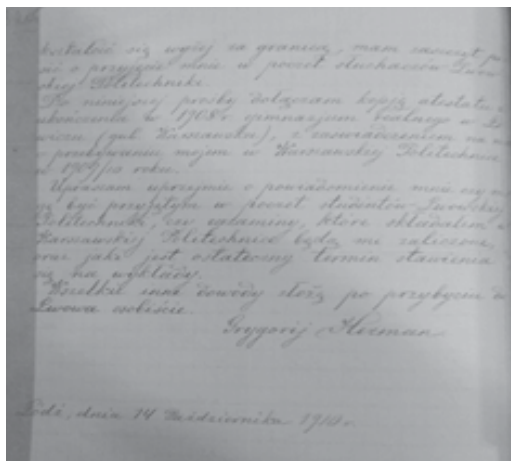 kształcić się wyżej za granicą, mam zaszczyt pro-
sić o przyjęcie mnie w poczet słuchaczów Lwow-
skiej Politechniki.
Do niniejszej prośby dołączam kopją atestatu z
ukończenia w 1908 r. gimnazjum realnego w Ło-
wiczu (gub. Warszawska), z zaświadczeniem na
o przebywaniu mojem w Warszawskiej Politechnice
w 1909/10 roku.
Upraszam uprzejmie o powiadomienie mnie czy
być przyjętym w poczet studentów Lwowskiej
Politechniki, czy egzaminy, które składałem w
Warszawskiej Politechnice będą mi zaliczone,
oraz jaki jest ostateczny termin stawienia
się na wykłady.
Wszelkie inne dowody złożę po przybyciu do
Lwowa osobiście.
Grygorij Herman
Łódź, dnia 14 Października 1910 r.